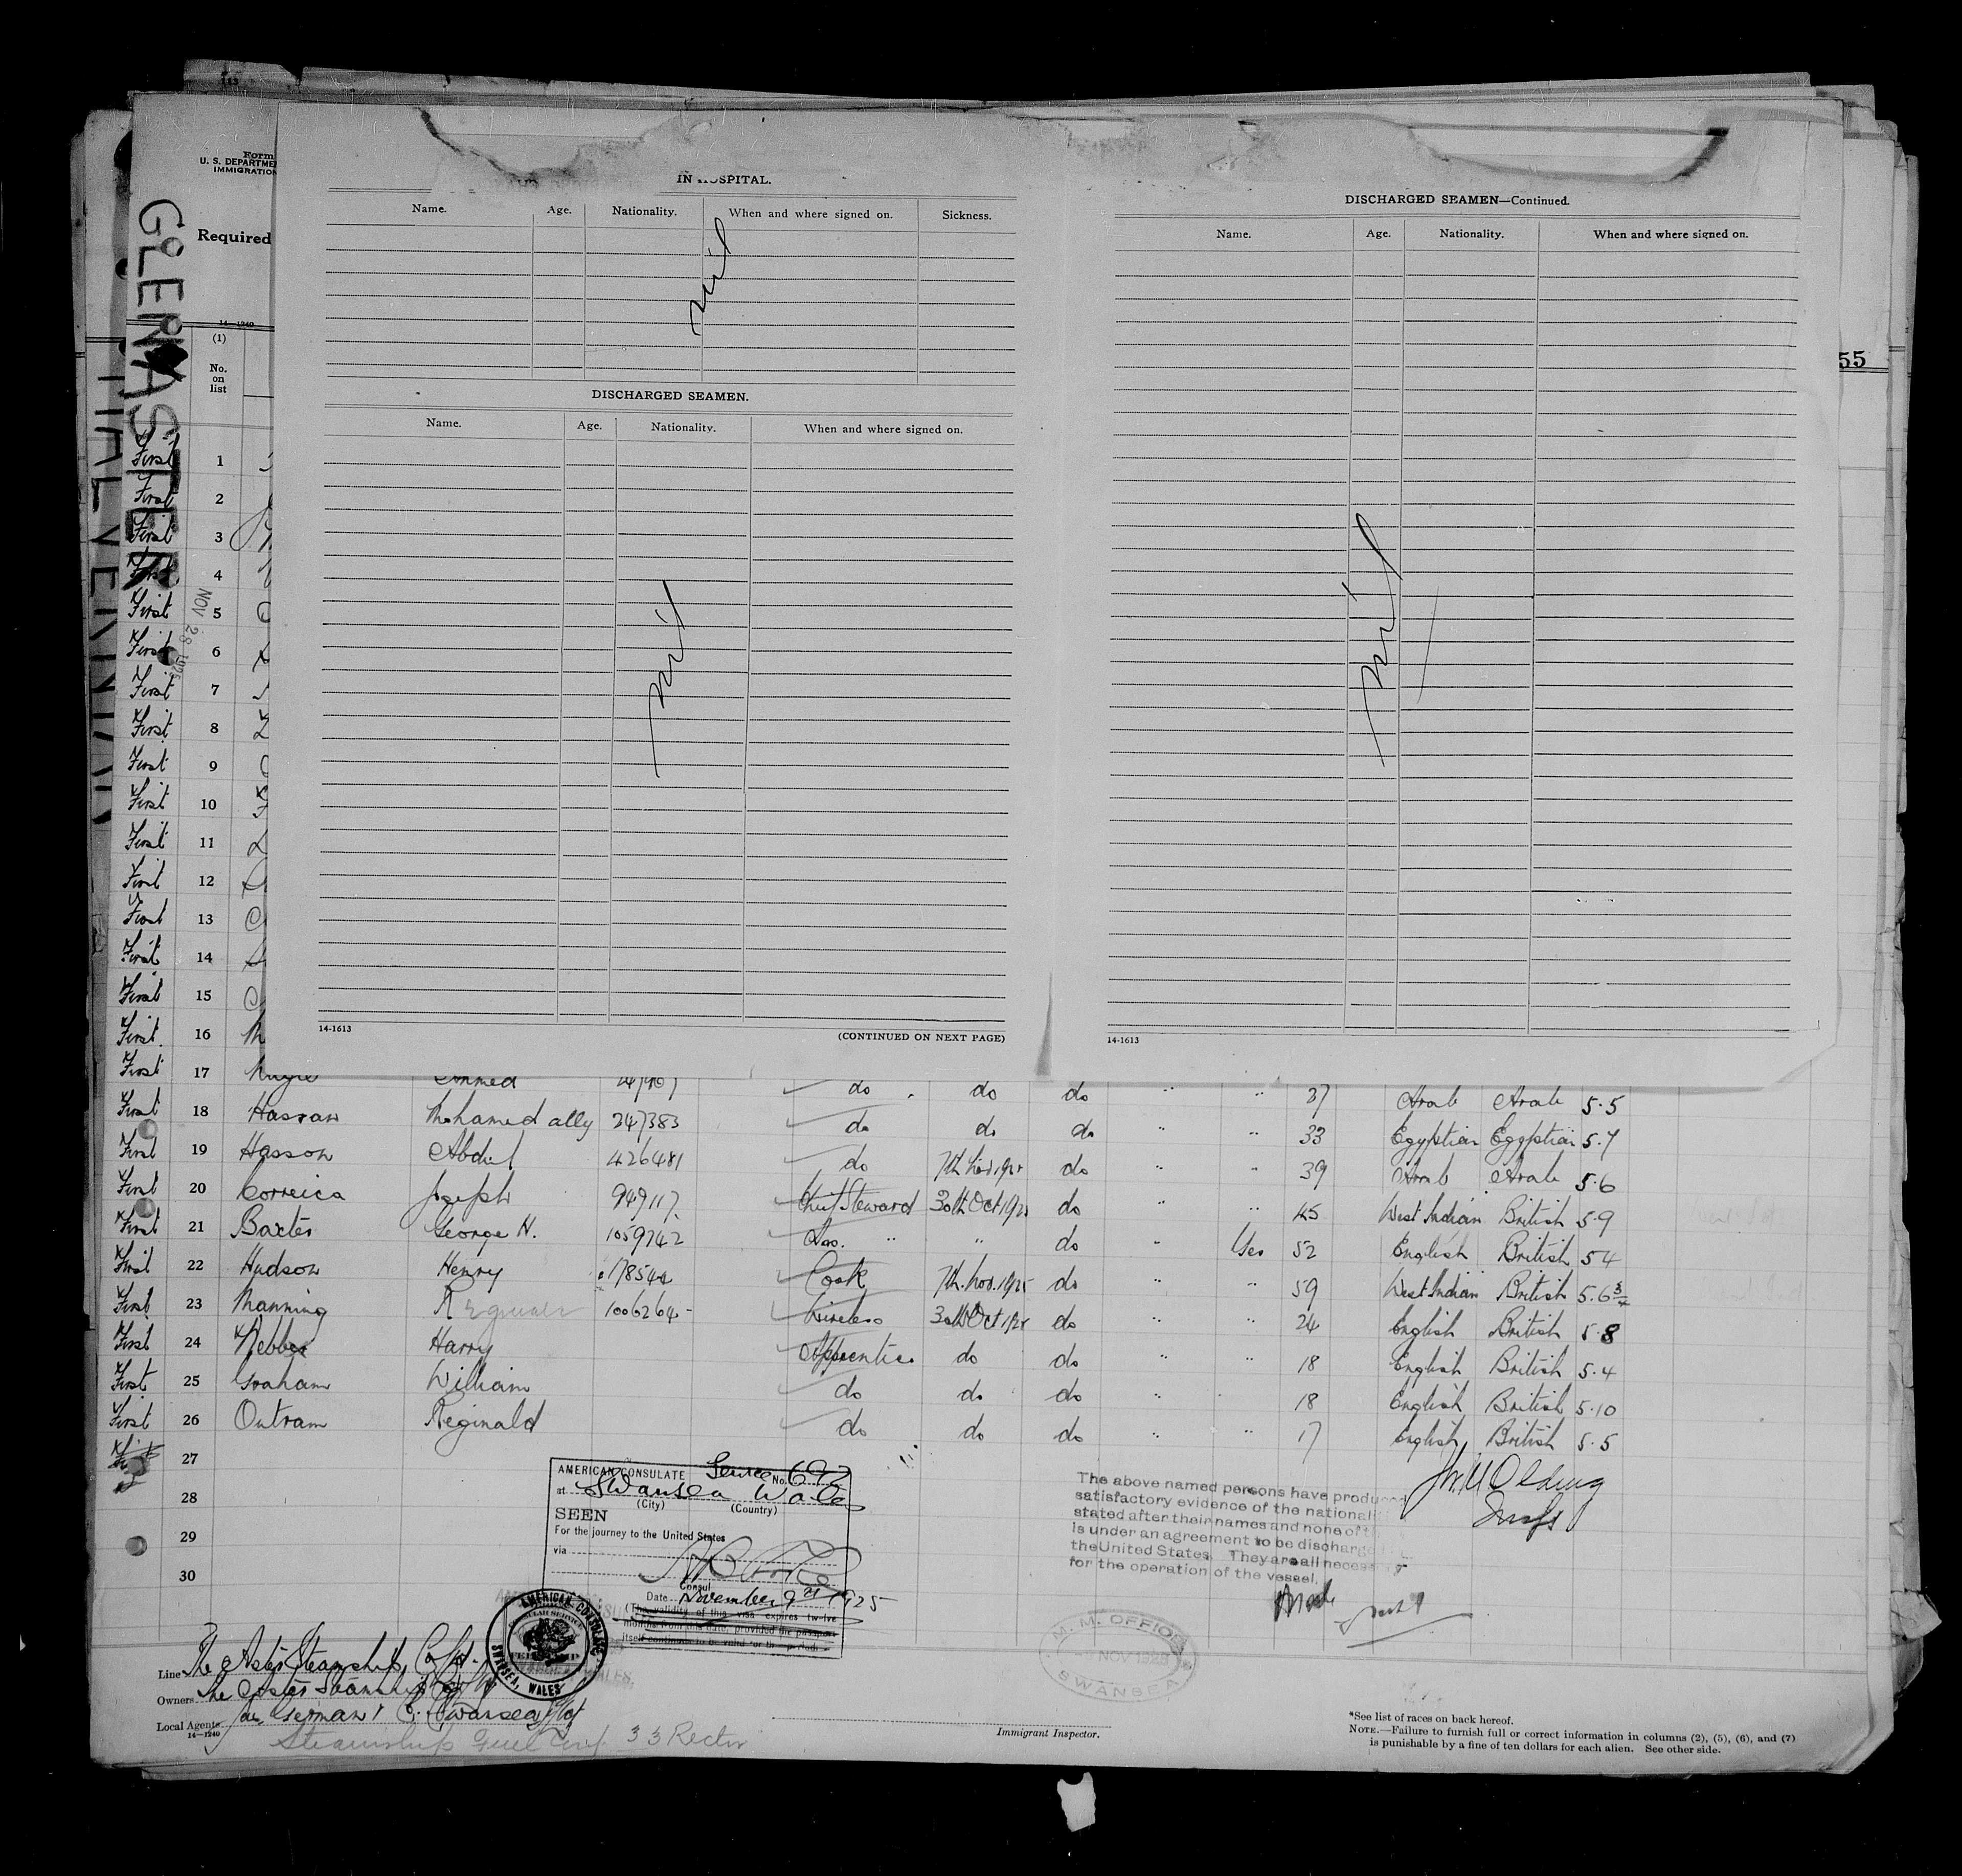 Form
U. S. DEPARTME
IMMIGRATION
GLENASTER
Required
14—1240
(1)
No.
on
list
55
NOV 28 1925
IN HOSPITAL.
Name. Age. Nationality. When and where signed on. Sickness.
nil
DISCHARGED SEAMEN.
Name. Age. Nationality. When and where signed on.
nil
14-1613
(CONTINUED ON NEXT PAGE)
DISCHARGED SEAMEN—Continued.
Name. Age. Nationality. When and where signed on.
nil
14-1613
First 1
First 2
First 3
First 4
First 5
First 6
First 7
First 8
First 9
First 10
First 11
First 12
First 13
First 14
First 15
First 16
First 17 Ahmed do do do " " 37 Arab Arab 5.5
First 18 Hassan Mohamed ally 247383 do do do " " 33 Egyptian Egyptian 5.7
First 19 Hasson Abdul 426481 do 7th Nov 1925 do " " 39 Arab Arab 5.6
First 20 Correica Joseph 949117 Chief Steward 30th Oct 1925 do " " 45 West Indian British 5.9
First 21 Baxter George H. 1059242 Ass. " " do " Yes 52 English British 5 4
First 22 Hudson Henry 178544 Cook 7th. Nov. 1925 do " " 59 West Indian British 5.6 3/4
First 23 Manning 1006264 Wireless 30th Oct 1925 do " " 24 English British 5.8
First 24 Webber Harry Apprentice do do " " 18 English British 5.4
First 25 Graham William do do do " " 18 English British 5.10
First 26 Outram Reginald do do do " " 17 English British 5.5
27
28
29
30
AMERICAN CONSULATE Service No. 692
at Swansea Wales
(City) (Country)
SEEN
For the journey to the United States
via
Consul
Date November 9th 1925
(The validity of this visa expires twelve
months from this date, provided the passport
itself continues to be valid for that period.)
AMERICAN CONSULATE
SWANSEA, WALES
The above named persons have produc
satisfactory evidence of the nationali
stated after their names and none of t
is under an agreement to be discharge
the United States. They are all necess
for the operation of the vessel.
M. M. OFFICE
NOV 1925
SWANSEA
Line The Aster Steamship Co Ltd.
Owners The Aster Steamship Co
Local Agents
14—1240
Steamship 33 Rector
Immigrant Inspector.
*See list of races on back hereof.
NOTE.—Failure to furnish full or correct information in columns (2), (5), (6), and (7)
is punishable by a fine of ten dollars for each alien. See other side.